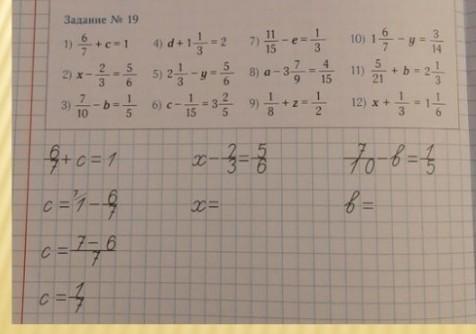 Задание № 19
1) 6/7 + c = 1 4) d + 1 1/3 = 2 7) 11/15 − e = 1/3 10) 1 6/7 − y = 3/14
2) x − 2/3 = 5/6 5) 2 1/3 − y = 5/6 8) a − 3 7/9 = 4/15 11) 5/21 + b = 2 1/3
3) 7/10 − b = 1/5 6) c − 1/15 = 3 2/5 9) 1/8 + z = 1/2 12) x + 1/3 = 1 1/6
6/7 + c = 1 x − 2/3 = 5/6 7/10 − b = 1/5
c = 1 − 6/7 x = b =
c = 7 − 6/7
c = 1/7